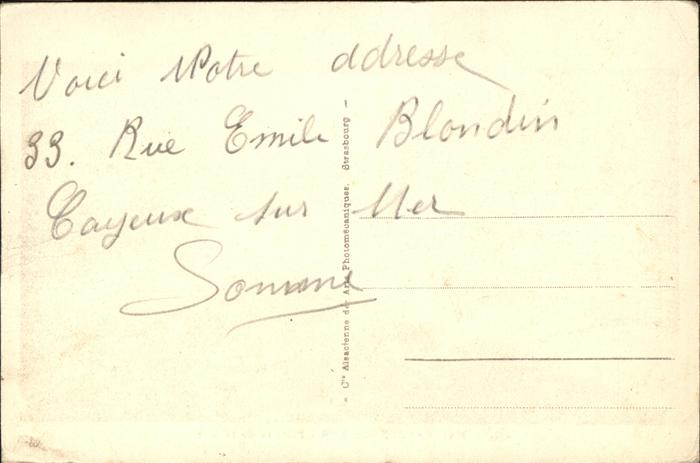 Voici Notre adresse
33. Rue Emile Blondin
Cayeux sur Mer
Somme
- Cie Alsacienne des Arts Photomécaniques. Strasbourg -